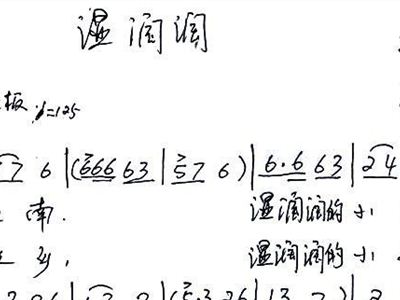 湿润润
板 ♩=125
7 6 | (666 63 | 57 6) | 6·6 63 | 24
南. 湿润润的小
乡, 湿润润的小